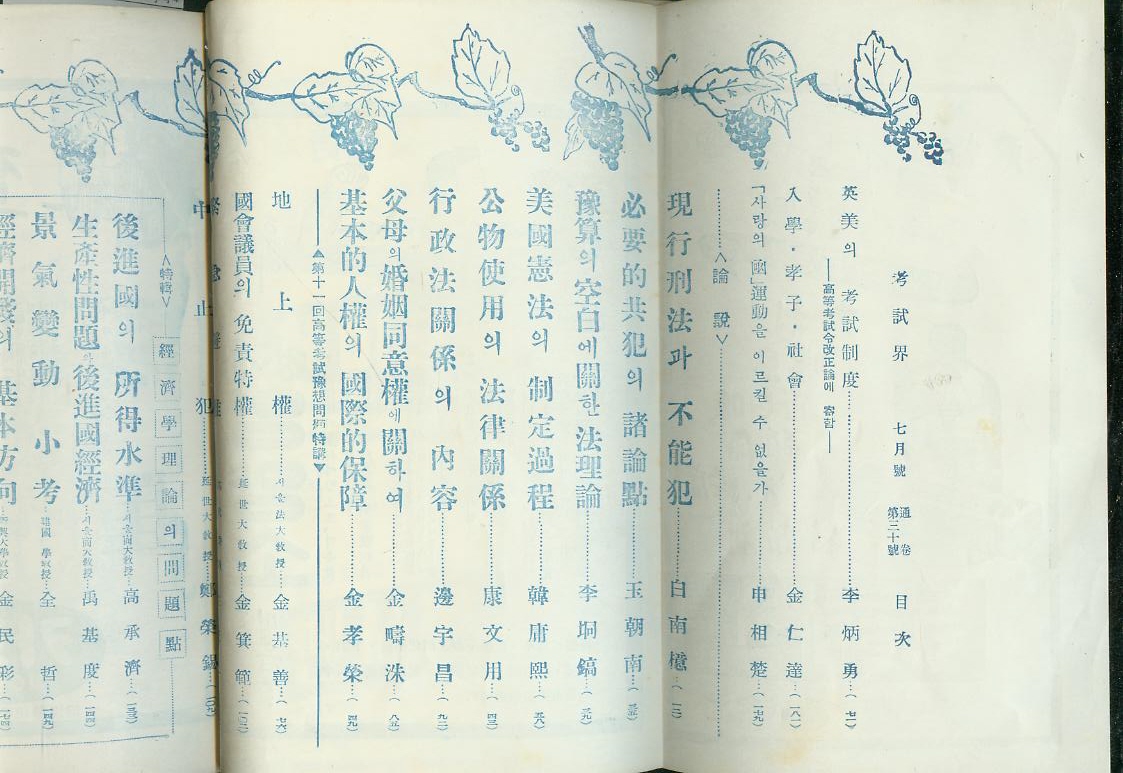 考試界 七月號 通卷第三十號 目次
英美의 考試制度 李炳勇
高等考試令改正論에 寄함
入學・孝子・社會 金仁達
「사랑의 運動을 이르킬 수 없을가 申相楚
<論說>
現行刑法과 不能犯 白南檍
必要的共犯의 諸論點 玉朝南
豫算의 空白에關한 法理論 李坰鎬
美國憲法의 制定過程 韓庸熙
公物使用의 法律關係 康文用
行政法關係의 內容 邊宇昌
父母의 婚姻同意權에 關하여 金疇洙
基本的人權의 國際的保障 金孝榮
▲第十一回高等考試豫想問題特講▼
地上權 서울法大教授 金基善
國會議員의 免責特權 延世大教授 金箕範
中止犯 延世大教授 鄭榮錫
<特輯> 經濟學理論의問題點
後進國의 所得水準 서울商大教授 高承濟
生產性問題와 後進國經濟 서울商大教授 禹基度
景氣變動小考 全 哲
經濟開發의 基本方向 金民彩